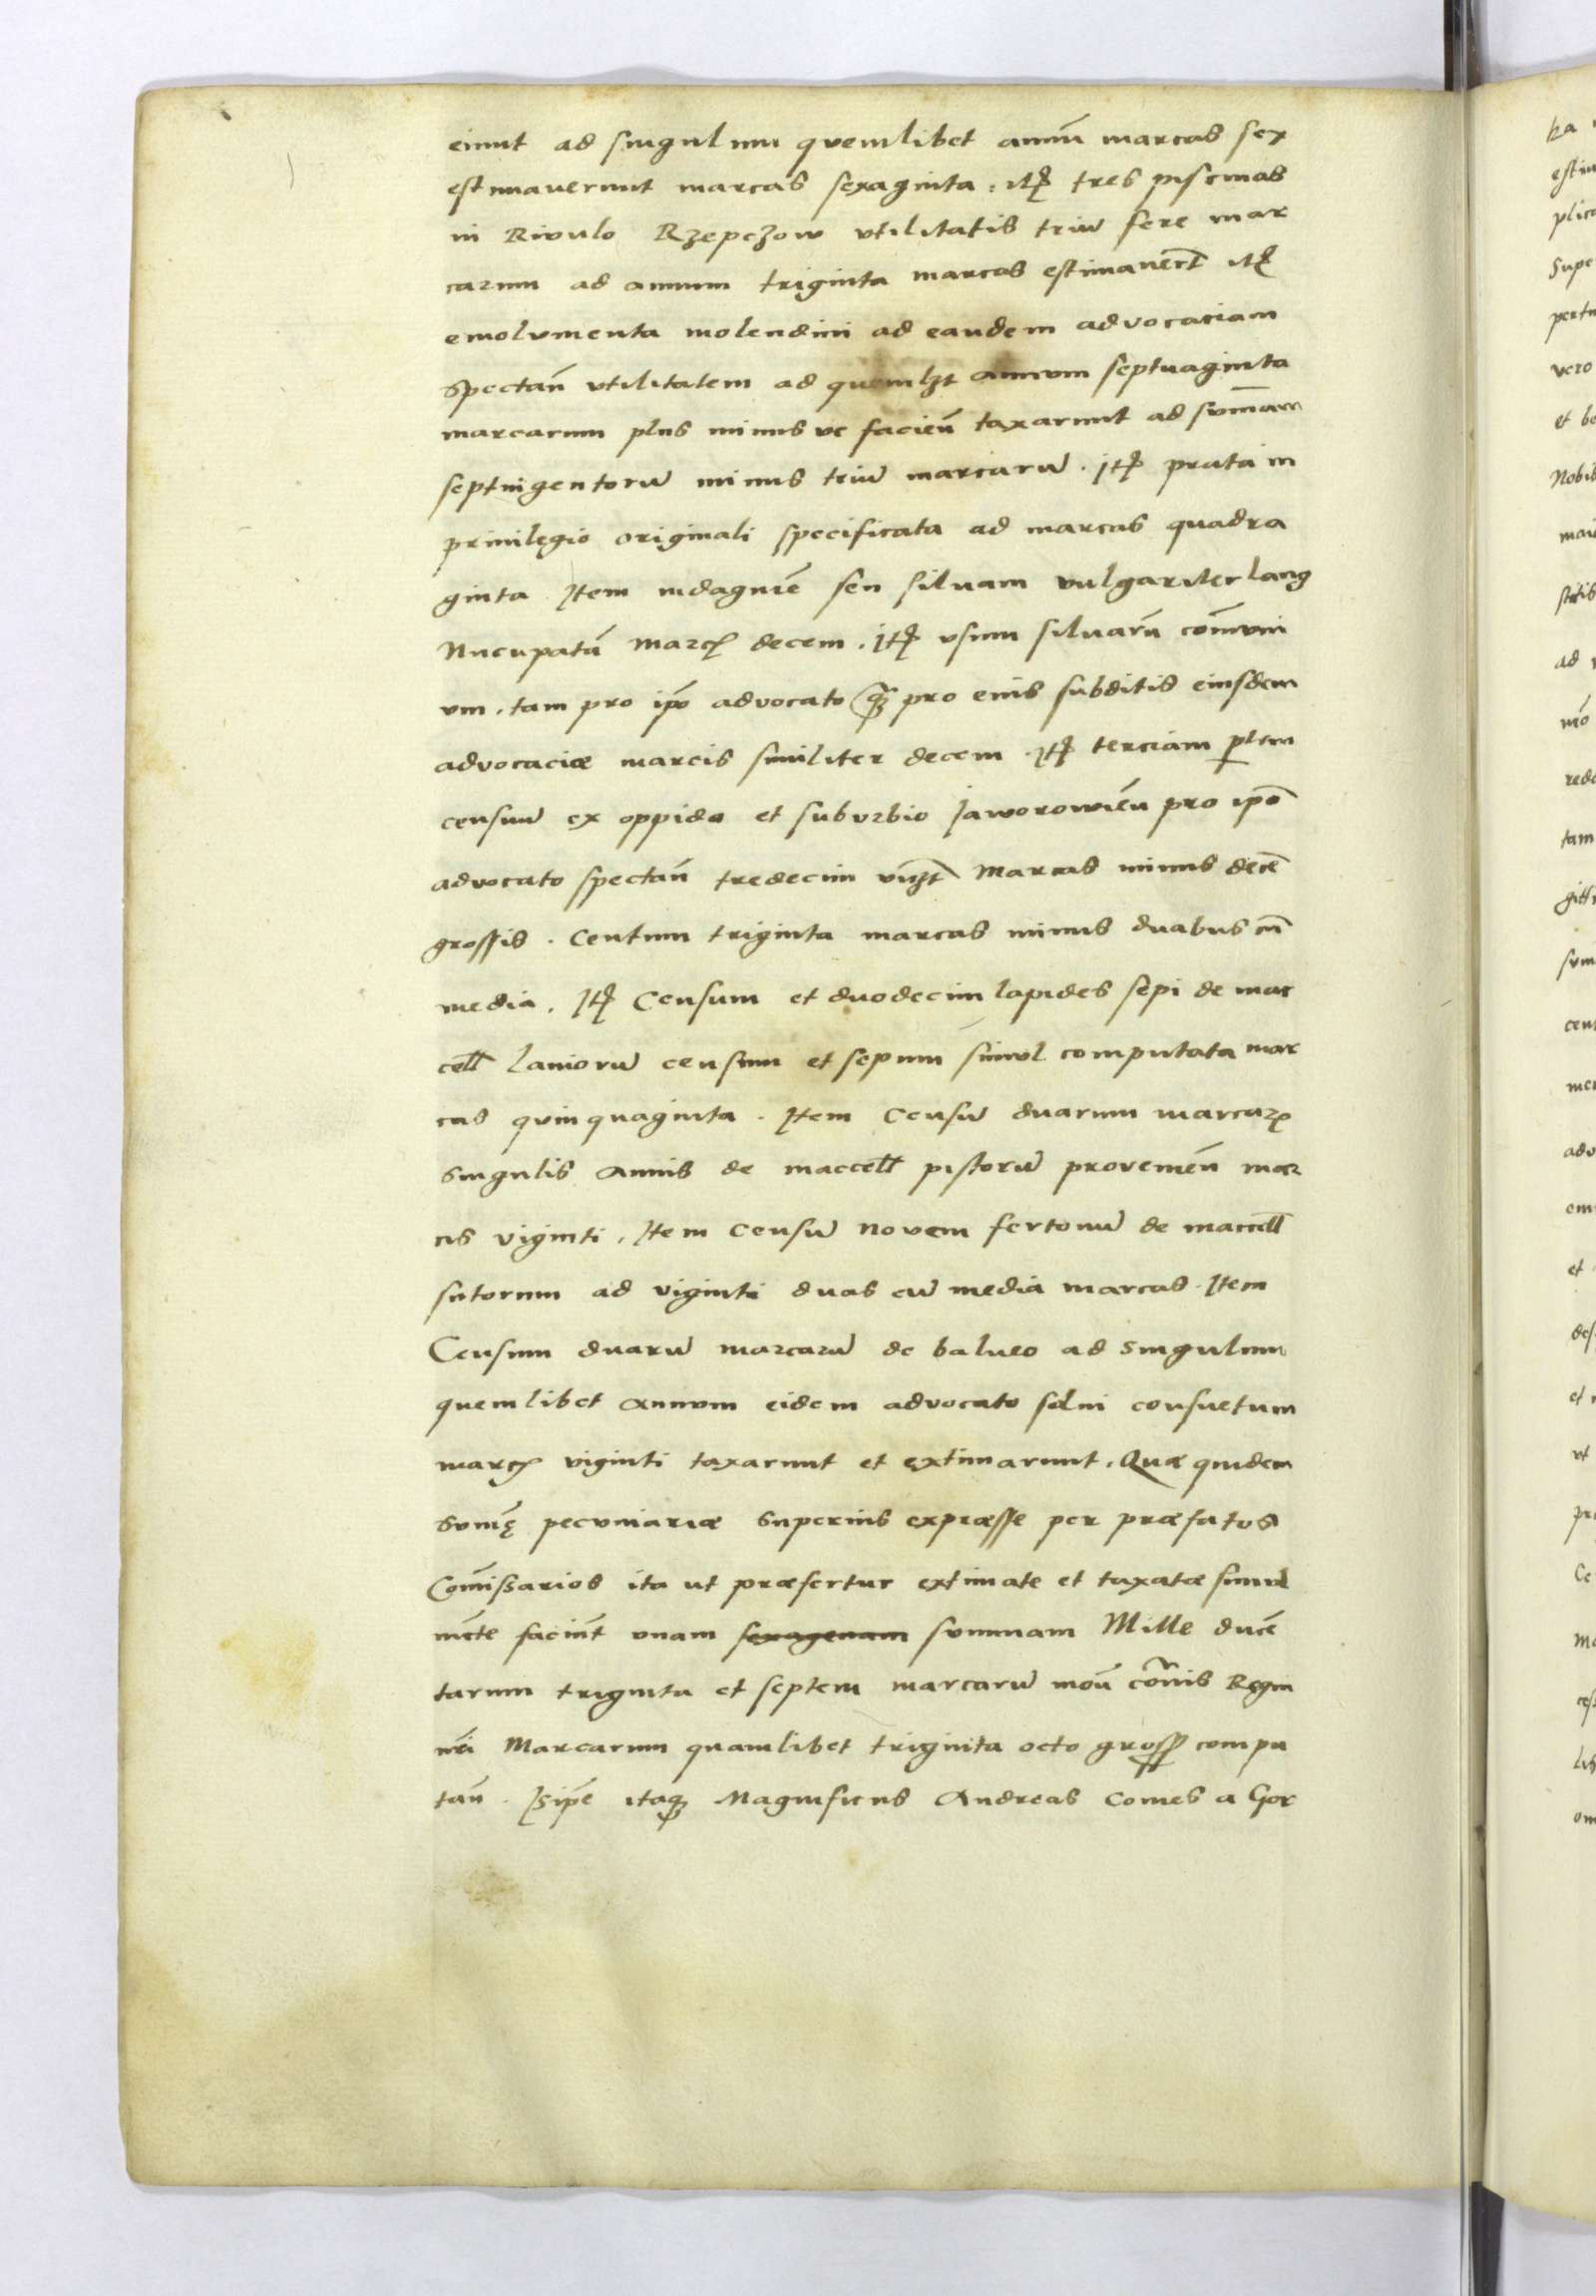 eiunt ad singulum quemlibet annũ marcas sex
estimaverunt marcas sexaginta, itꝫ tres piscinas
in Rivulo Rzepczow vtilitatis triũ fere mar
carum ad annum triginta marcas estimavert̃ itꝫ
emolumenta molendini ad eandem advocaciam
spectan̄ vtilitatem ad quemlꝫt annum septuaginta
marcarum plus minus ve facien̄ taxarunt ad sum̄am
septingentorũ minus triũ marcarũ. Itꝫ prata in
privilegio originali specificata ad marcas quadra
ginta Item indaginẽ seu silvam vulgariter lang
Nucupatã marcꝭ decem. Itꝫ vsum silvarũ com̄uni
um. tam pro ip̃o advocato qꝫ̃ pro eius subditis eiusdem
advocaciæ marcis similiter decem Itꝫ terciam ꝑtem
censuũ ex oppido et suburbio Jaworowień pro ip̃o
advocato spectan̄ tredecim vꝫt̃ Marcas minus decẽ
grossis. Centum triginta marcas minus duabus cũ
media. Itꝫ Censum et duodecim lapides sepi de mac
cell̃ laniorũ censum et sepum simul computata mar
cas quinquaginta. Item Censũ duarum marcarꝝ
singulis annis de maccell̃ pistorũ provenień mar
cis viginti, Item Censũ novem fertonũ de maccell̃
sutorum ad viginti duas cũ media marcas. Item
Censum duarũ marcarũ de balneo ad singulum
quemlibet annum eidem advocato solui consuetum
marcꝭ viginti taxarunt et extimarunt. Quæ quidem
Sum̃ę pecuniariæ superius expræsse per præfatos
Com̃issarios ita ut præfertur extimate et taxatæ simul
iũcte faciũt vnam sexagenam summam Mille ducẽ
tarum triginta et septem marcarũ moñ com̃nis Regni
nr̃i Marcarum quamlibet triginta octo gross̃ compu
tan̄. Is ip̃e itaqꝫ Magnificus Andreas Comes a Gor